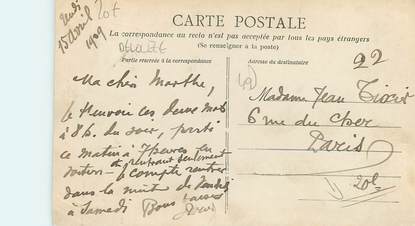 Jeudi
15 avril
1909
20f
CARTE POSTALE
La correspondance au recto n'est pas acceptée par tous les pays étrangers
(Se renseigner à la poste)
Partie réservée à la correspondance
Adresse du destinataire
92
Ma chère Marthe,
ces deux mots
à 8h. du soir, parti
ce matin à 7 heures en
voiture et rentrant seulement
compte rentrer
dans la nuit de Vendredi
à Samedi Bons baisers
Madame Jean
6 rue du Cher
Paris
20f